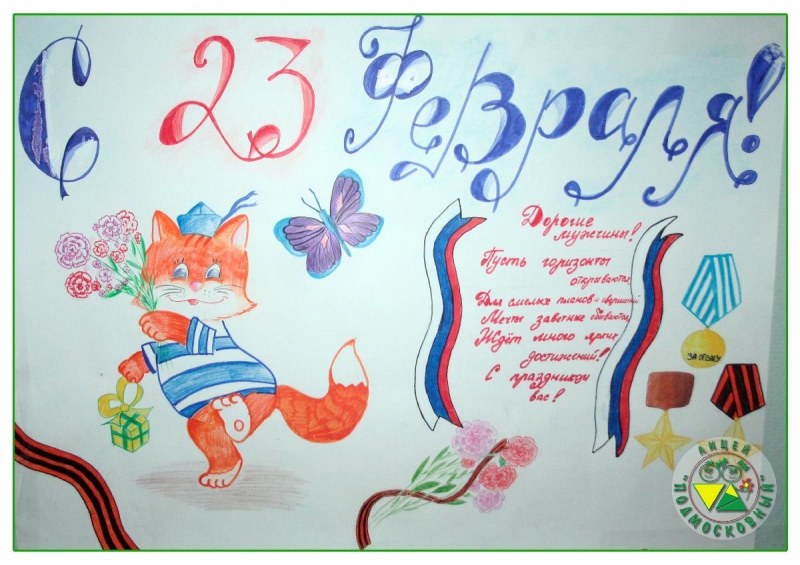 С 23 Февраля!
Дорогие
мужчины!
Пусть горизонты
открываются
Для смелых планов и свершений
Мечты заветные сбываются,
Ждёт много ярких
достижений!
С праздником
вас!
ЗА ОТВАГУ
ЛИЦЕЙ
"ПОДМОСКОВНЫЙ"